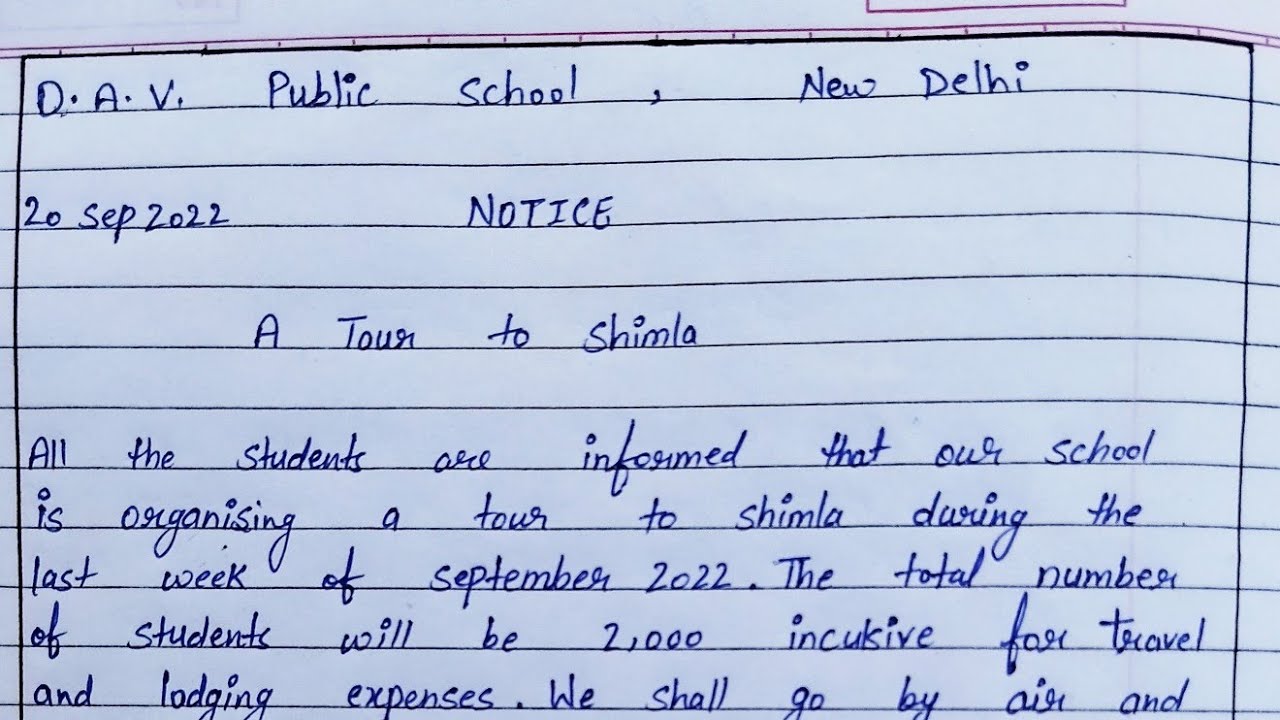 D.A.V. Public School, New Delhi
20 Sep 2022 NOTICE
A Tour to Shimla
All the students are informed that our school
is organising a tour to shimla during the
last week of september 2022. The total number
of students will be 2,000 incukive for travel
and lodging expenses. We shall go by air and